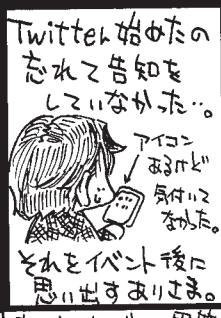 Twitter始めたの
忘れて告知を
していなかった…。
アイコン
あるけど
気付いて
なかった。
それをイベント後に
思い出すありさま。